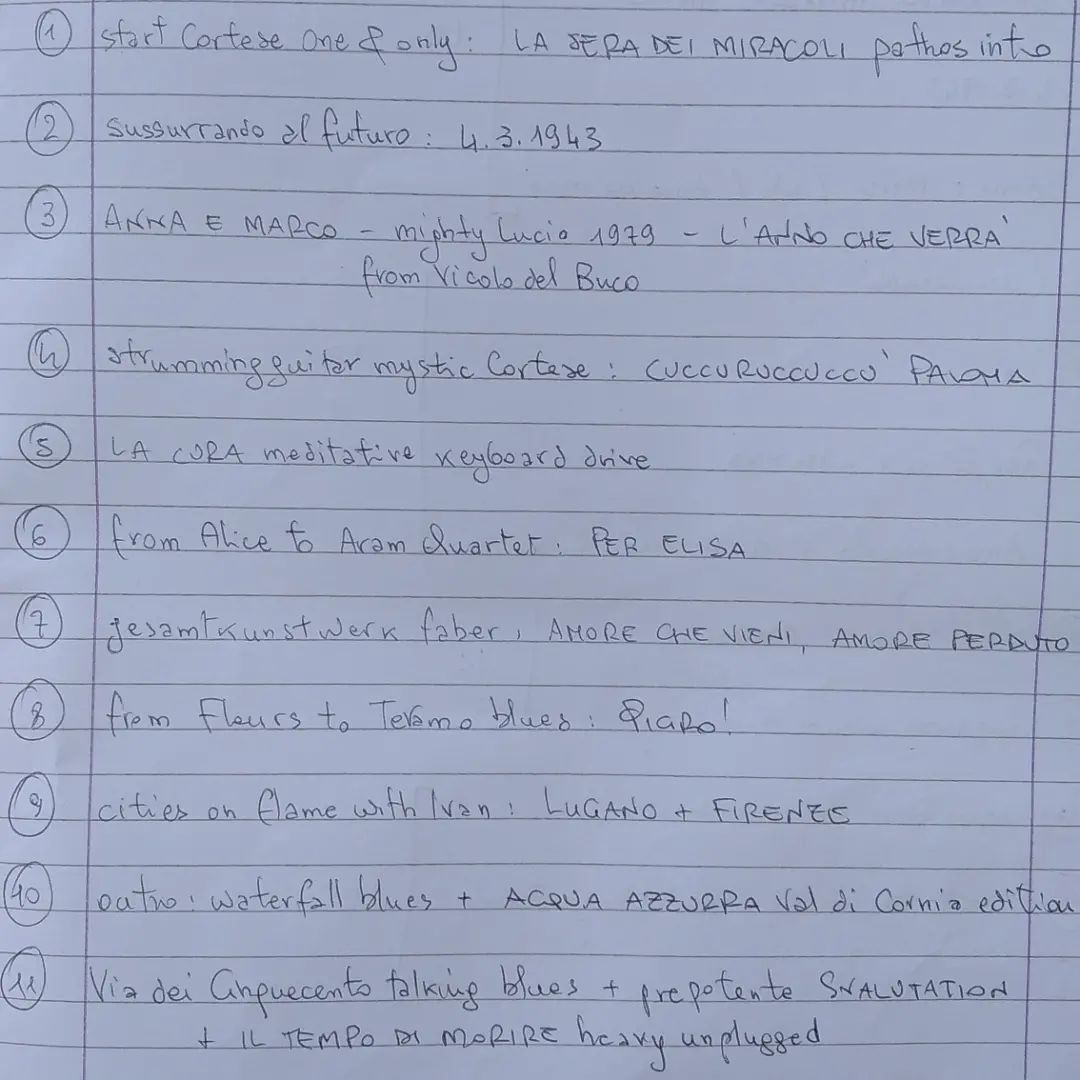 1 start Cortese One & only: LA SERA DEI MIRACOLI pathos intro
2 sussurrando al futuro: 4.3.1943
3 ANNA E MARCO - mighty Lucio 1979 - L'ANNO CHE VERRA'
from Vicolo del Buco
4 strumming guitar mystic Cortese: CUCCURUCCUCCU' PALOMA
5 LA CURA meditative keyboard drive
6 from Alice to Aram Quartet: PER ELISA
7 gesamtkunstwerk faber, AMORE CHE VIENI, AMORE PERDUTO
8 from Fleurs to Teramo blues: PIGRO!
9 cities on flame with Ivan: LUGANO + FIRENZE
10 outro: waterfall blues + ACQUA AZZURRA Val di Cornia edition
11 Via dei Cinquecento talking blues + prepotente SVALUTATION
+ IL TEMPO DI MORIRE heavy unplugged